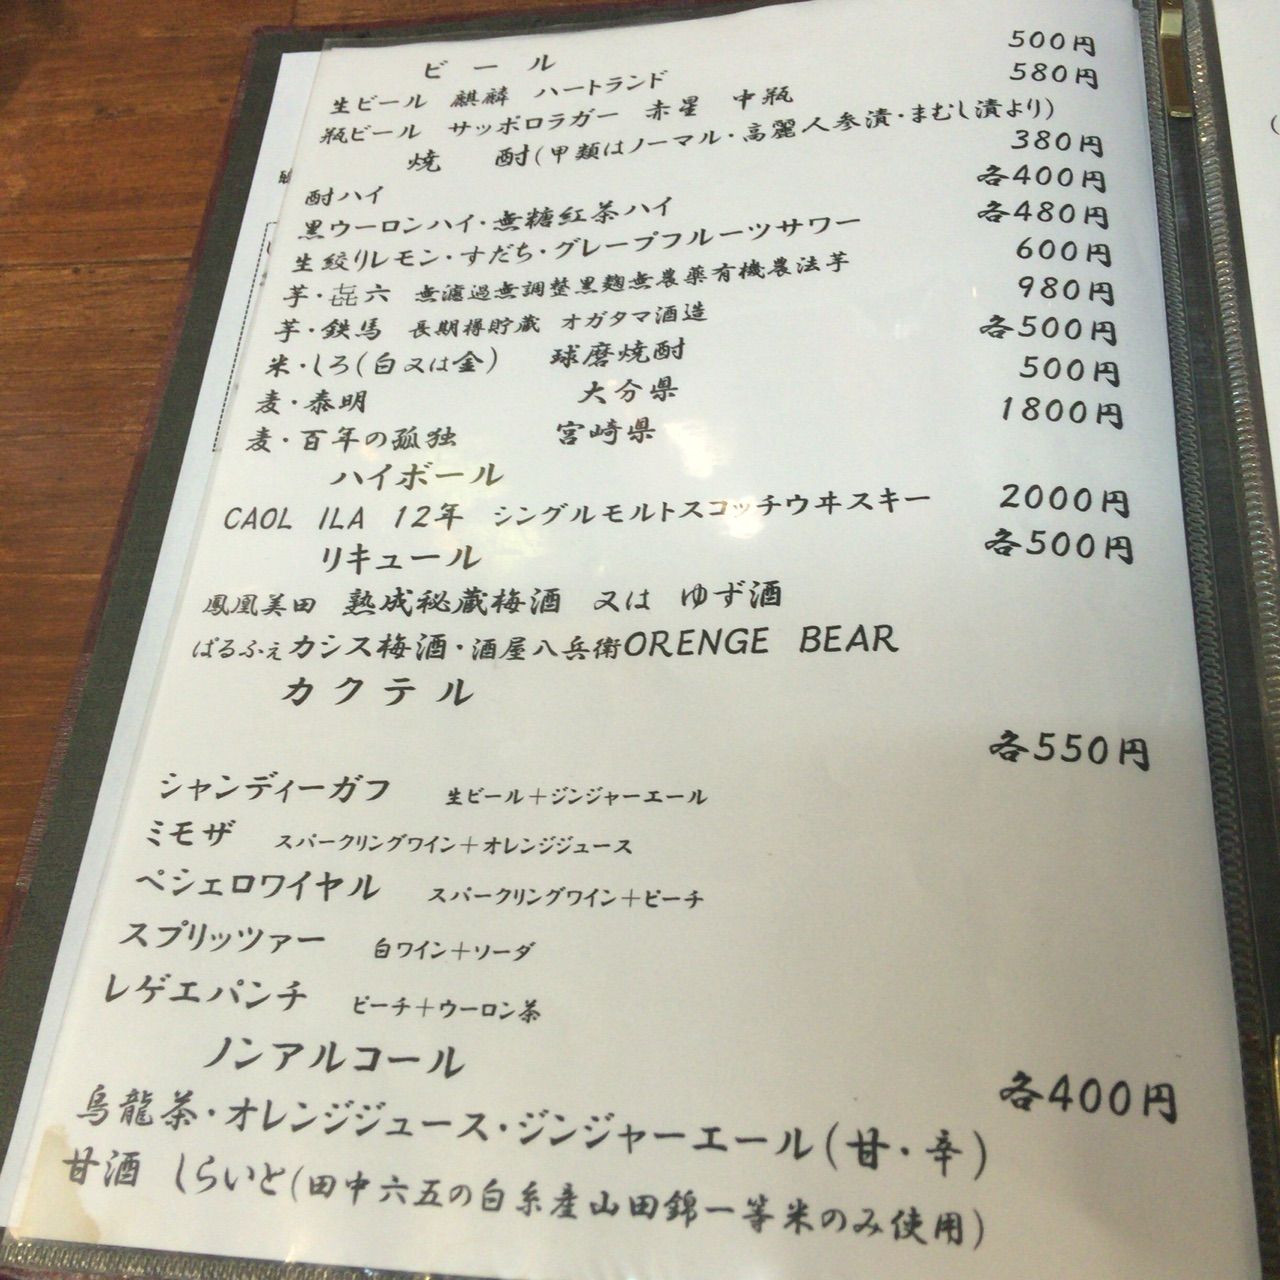 ビール
生ビール 麒麟 ハートランド 500円
瓶ビール サッポロラガー 赤星 中瓶 580円
焼 酎(甲類はノーマル・高麗人参漬・まむし漬より)
酎ハイ 380円
黒ウーロンハイ・無糖紅茶ハイ 各400円
生絞りレモン・すだち・グレープフルーツサワー 各480円
芋・㐂六 無濾過無調整黒麹無農薬有機農法芋 600円
芋・鉄馬 長期樽貯蔵 オガタマ酒造 980円
米・しろ(白又は金) 球磨焼酎 各500円
麦・泰明 大分県 500円
麦・百年の孤独 宮崎県 1800円
ハイボール
CAOL ILA 12年 シングルモルトスコッチウヰスキー 2000円
リキュール 各500円
鳳凰美田 熟成秘蔵梅酒 又は ゆず酒
ぱるふぇカシス梅酒・酒屋八兵衛ORENGE BEAR
カクテル
各550円
シャンディーガフ 生ビール+ジンジャーエール
ミモザ スパークリングワイン+オレンジジュース
ペシェロワイヤル スパークリングワイン+ピーチ
スプリッツァー 白ワイン+ソーダ
レゲエパンチ ピーチ+ウーロン茶
ノンアルコール
各400円
烏龍茶・オレンジジュース・ジンジャーエール(甘・辛)
甘酒 しらいと(田中六五の白糸産山田錦一等米のみ使用)